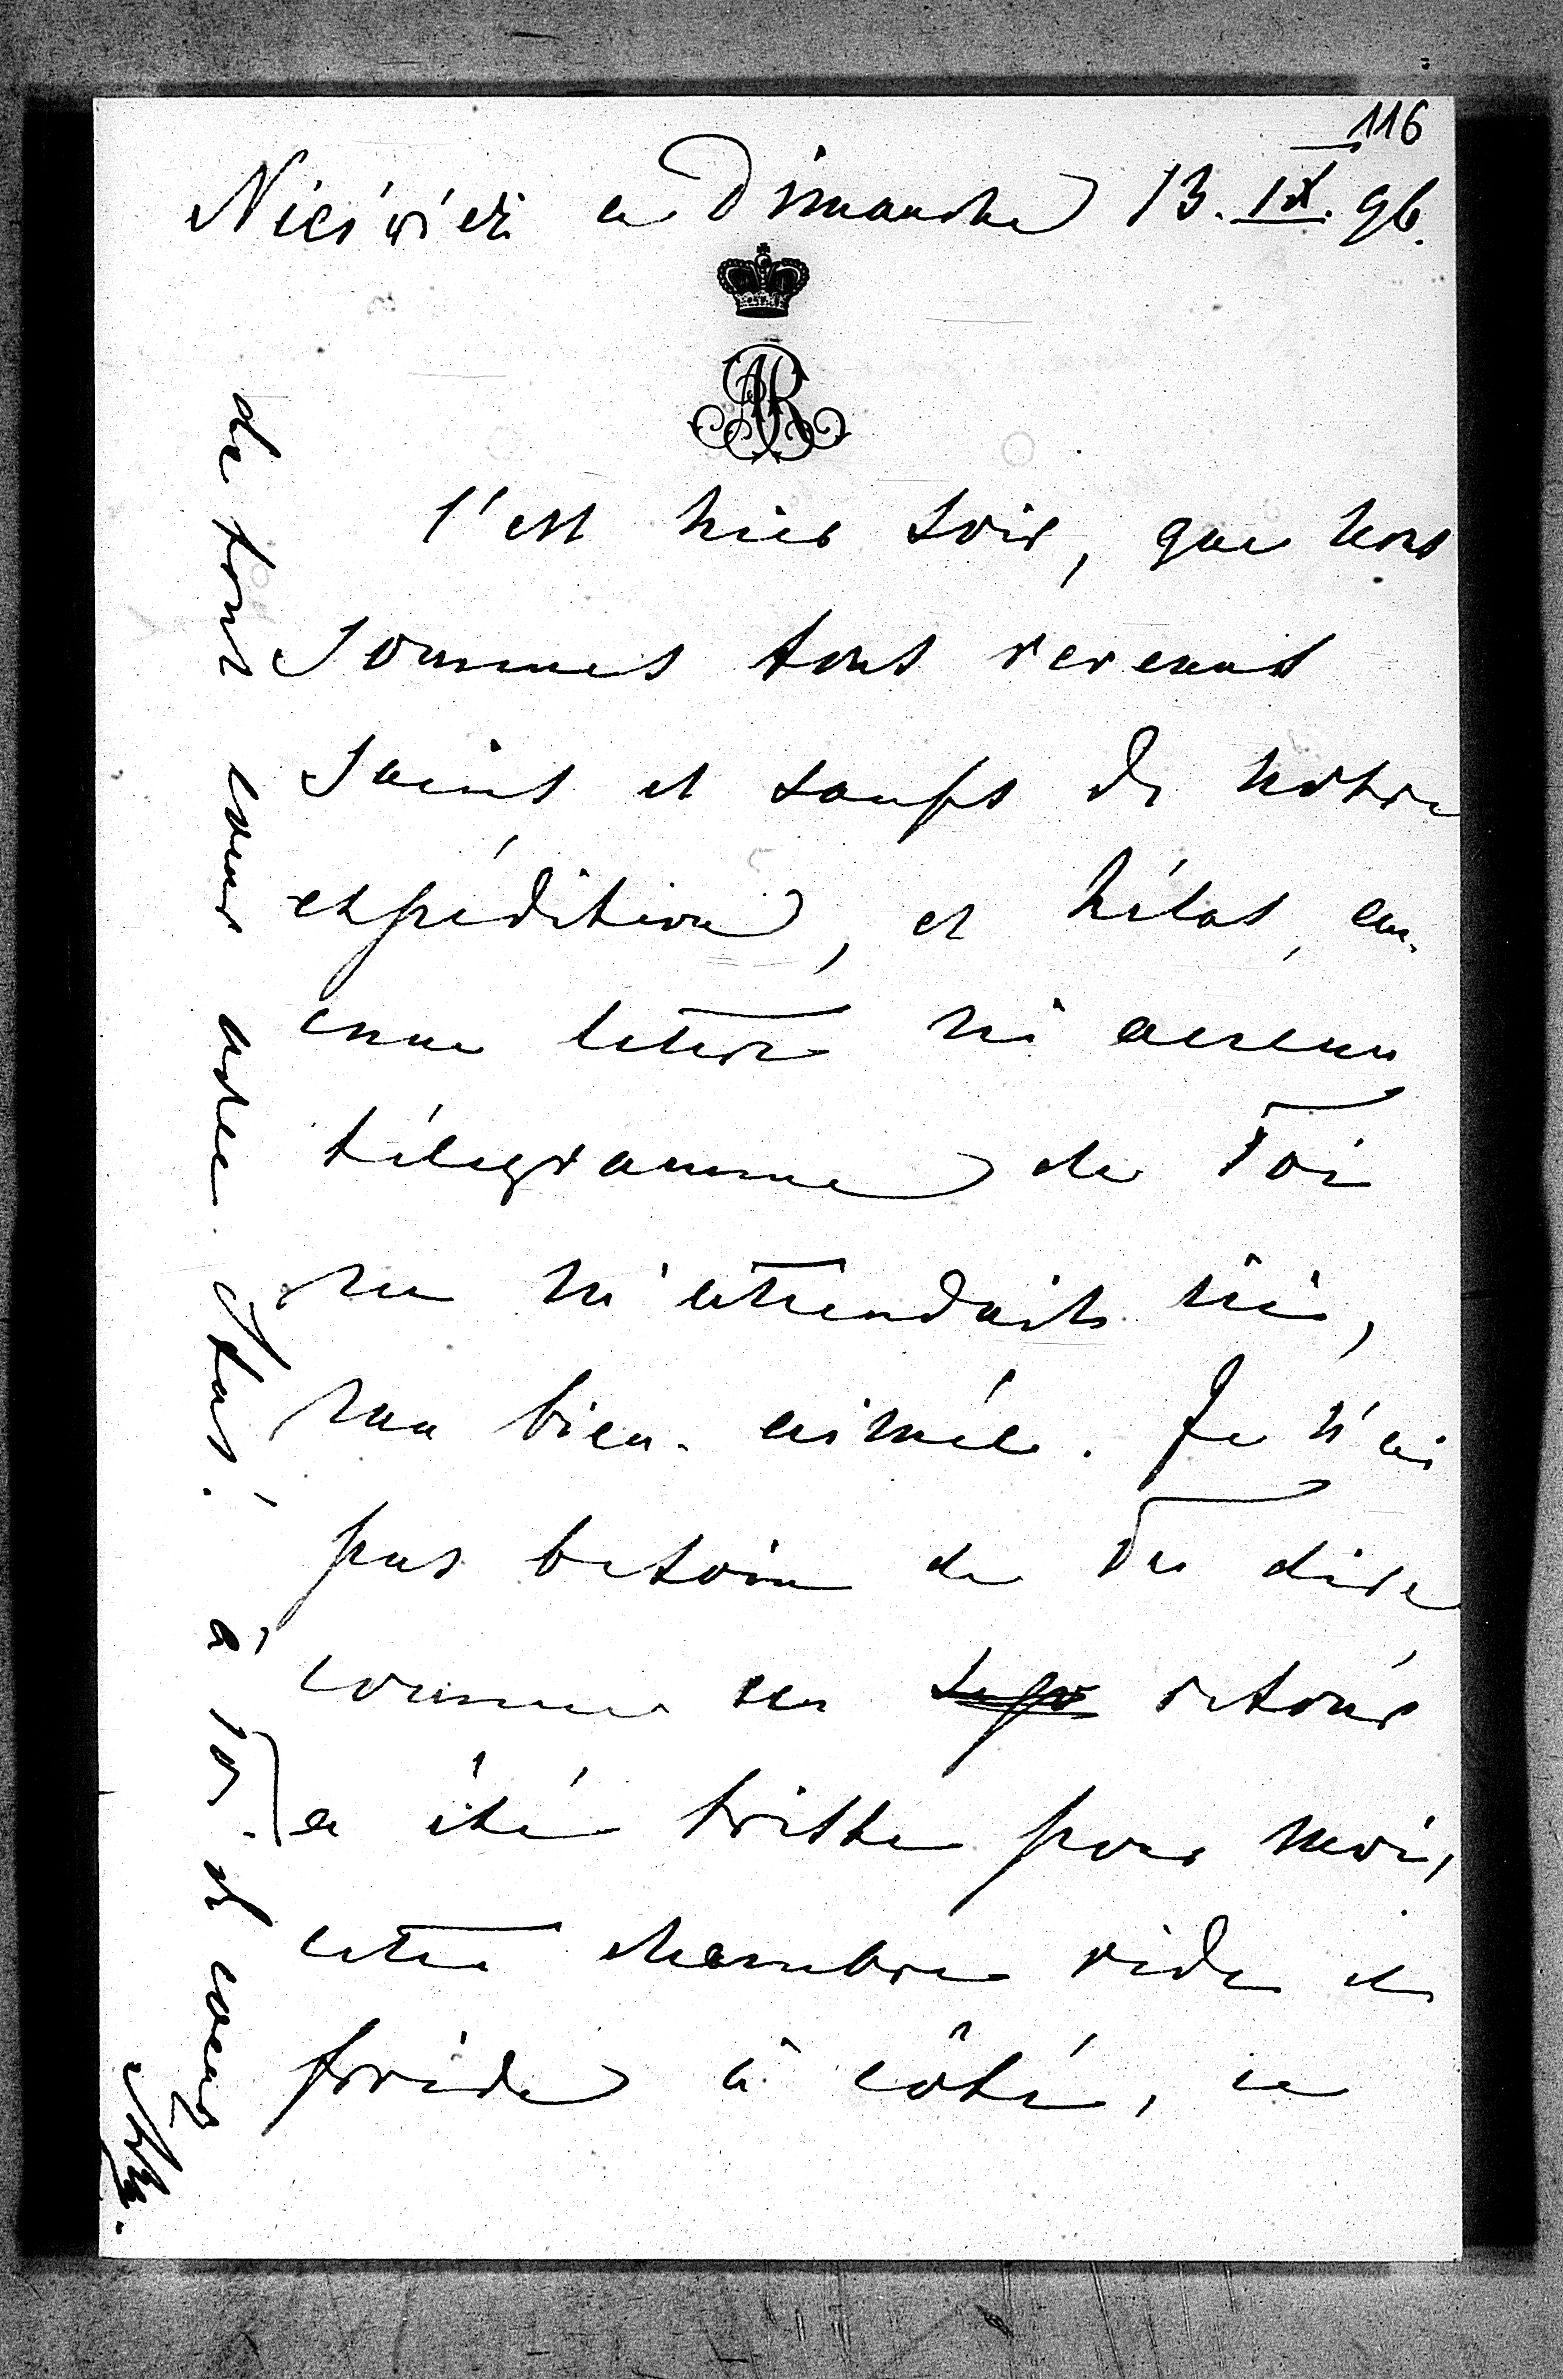 116
Nieśwież ce Dimanche 13. IX. 96.
AR
C'est hier soir, que nous
sommes tous revenus
sains et saufs de notre
expédition, et hélas, au-
cune lettre ni aucun
télégramme de Toi
ne m'attendait ici,
ma bien-aimée. Je n'ai
pas besoin de Te dire
comme ce retour
a été triste pour moi,
cette chambre vide et
froide à côté, ce
de tout cœur
à Toi de cœur